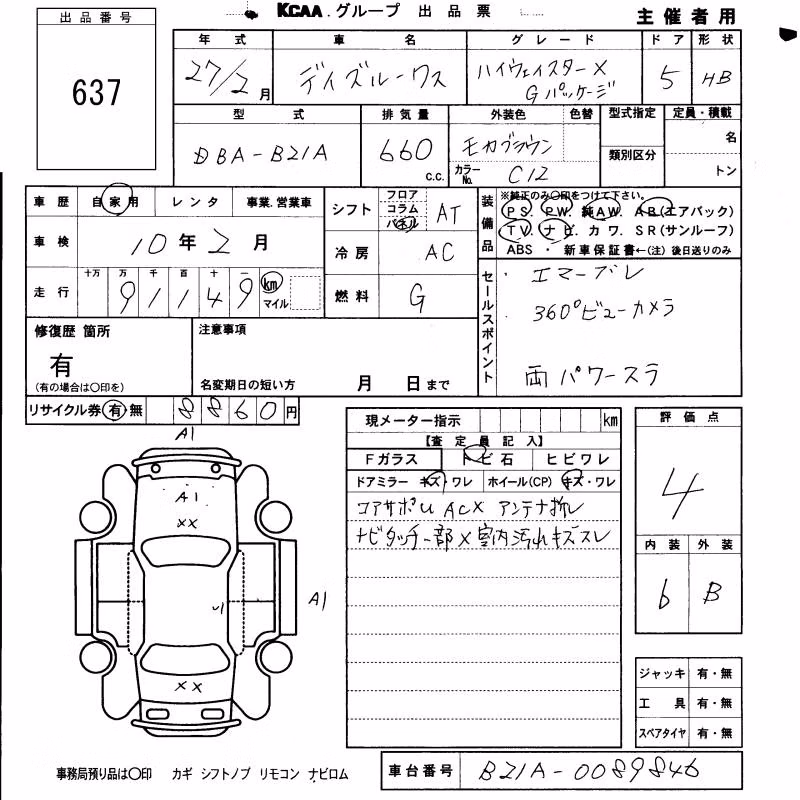 KCAA.グループ 出品票
主催者用
出品番号
637
年式 車名 グレード ドア 形状
27/2月 デイズルークス ハイウェイスターX Gパッケージ 5 HB
型式 排気量 外装色 色替 型式指定 定員・積載
DBA-B21A 660 c.c. モカブラウン 類別区分 名
カラーNo. C12 トン
車歴 自家用 レンタ 事業.営業車
車検 10年2月
走行 十万 万 千 百 十 一
9 1 1 4 9 km マイル
シフト フロア コラム パネル AT
冷房 AC
燃料 G
装備品 ※純正のみ〇印をつけて下さい。
PS. PW. 純AW. AB(エアバック)
TV. ナビ. カワ. SR(サンルーフ)
ABS ・ 新車保証書←(注) 後日送りのみ
セールスポイント
・エマーブレ
・360°ビューカメラ
両パワースラ
修復歴 箇所
有
(有の場合は〇印を)
注意事項
名変期日の短い方 月 日まで
リサイクル券 有 無 8860円
現メーター指示 km
【査定員記入】
Fガラス トビ石 ヒビワレ
ドアミラー キズ・ワレ ホイール(CP) キズ・ワレ
コアサポU ACX アンテナ折レ
ナビタッチ一部× 室内汚れキズスレ
評価点
4
内装 外装
b B
A1
A1
XX
A1
XX
ジャッキ 有・無
工具 有・無
スペアタイヤ 有・無
事務局預り品は〇印 カギ シフトノブ リモコン ナビロム
車台番号 B21A-0089846